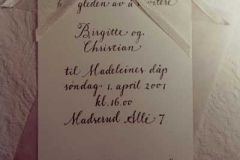 gleden av å invitere
Birgitte og
Christian
til Madeleines dåp
søndag 1. april 2001
kl. 16.00
Madserud Allé 7